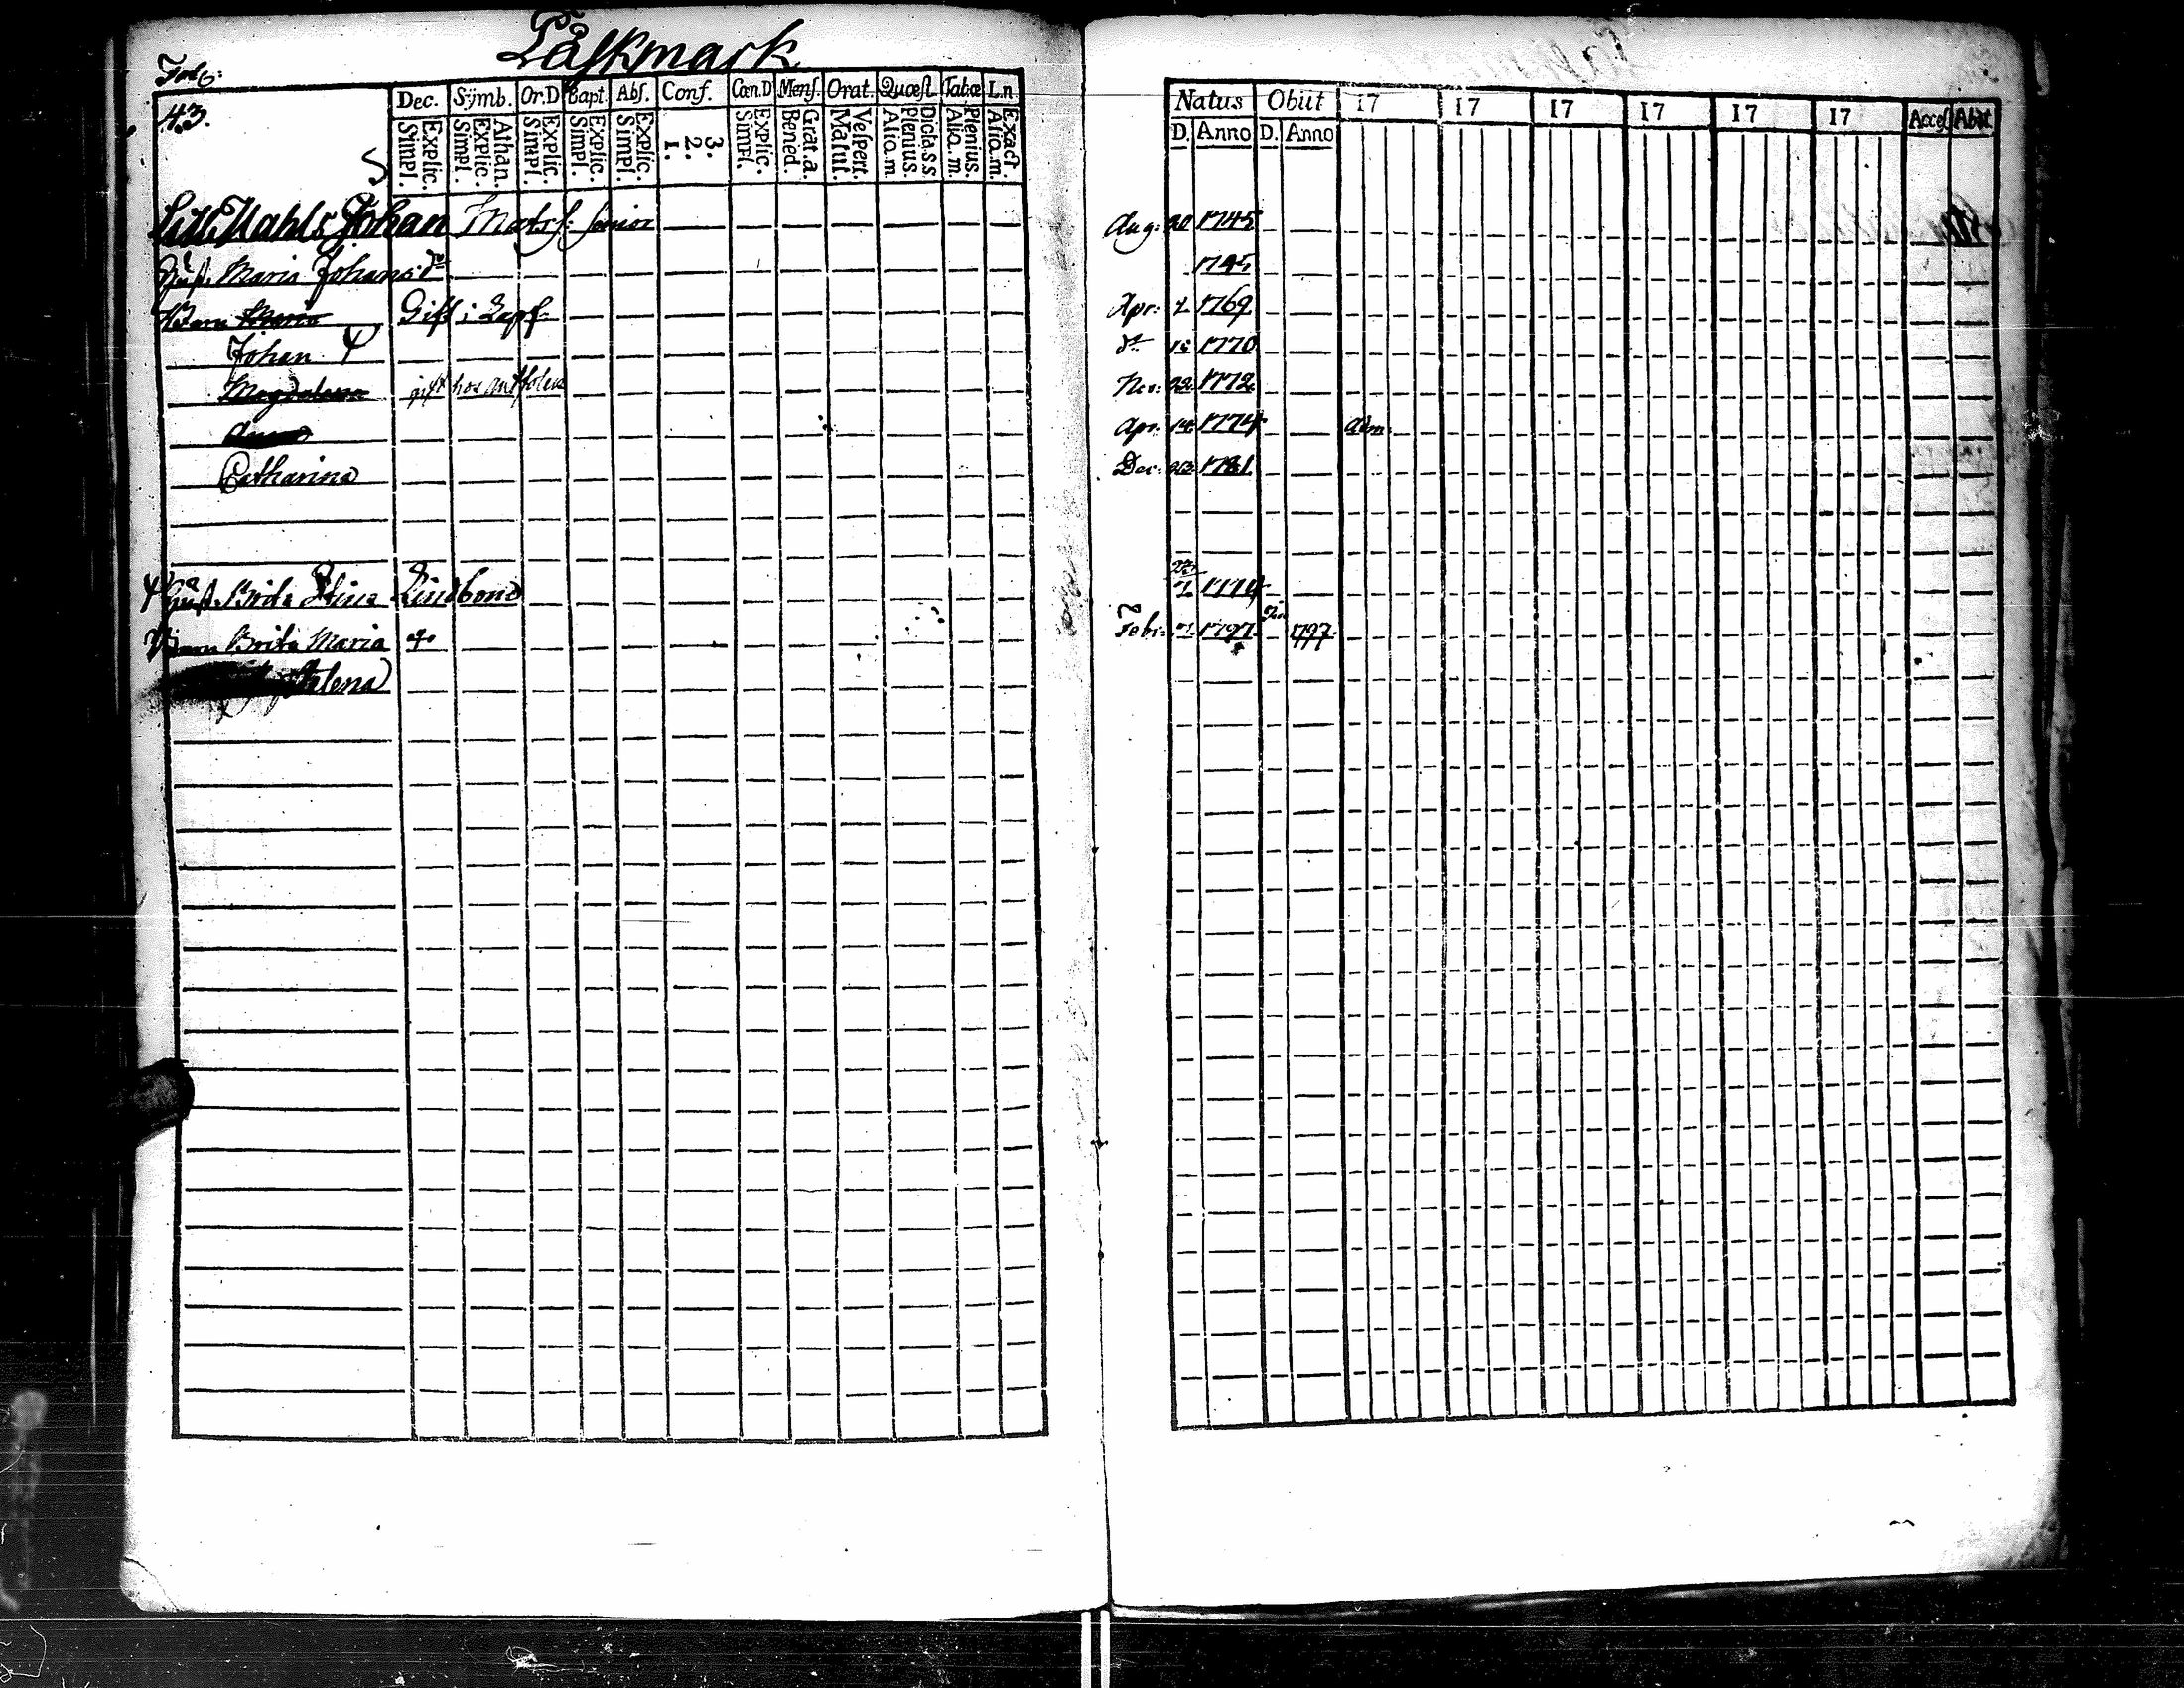 Påskmark
Fol 6:
43.
Dec. Symb. Or.D Bapt. Abs. Conf. Cœn.D Mens. Orat. Quæst. Tabæ L.n
Simpl. Explic. Simpl. Explic. Athan. Simpl. Explic. Simpl. Explic. Simpl. Explic. 1. 2. 3. Simpl. Explic. Bened. Grat.a. Matut. Vespert. Alio.m Plenius. Dicta.s.s Alio.m. Plenius. Alio.m. Exact.
Natus Obiit 17 17 17 17 17 17 Acces Abiit
D. Anno D. Anno
Lill Mahls Johan Matss: Senior Aug: 20 1745
Hust. Maria Johans dr 1745
Barn Maria Gift i Lapf. Apr: 1769
Johan dt 15 1770
Magdalena gift hos Nov: 22 1772
Anna Apr. 14 1774 adm.
Catharina Dec: 23 1781
Hust. Brita Stina Lindbond 7. 1774
Barn Brita Maria Febr: 7. 1797 1797
Helena